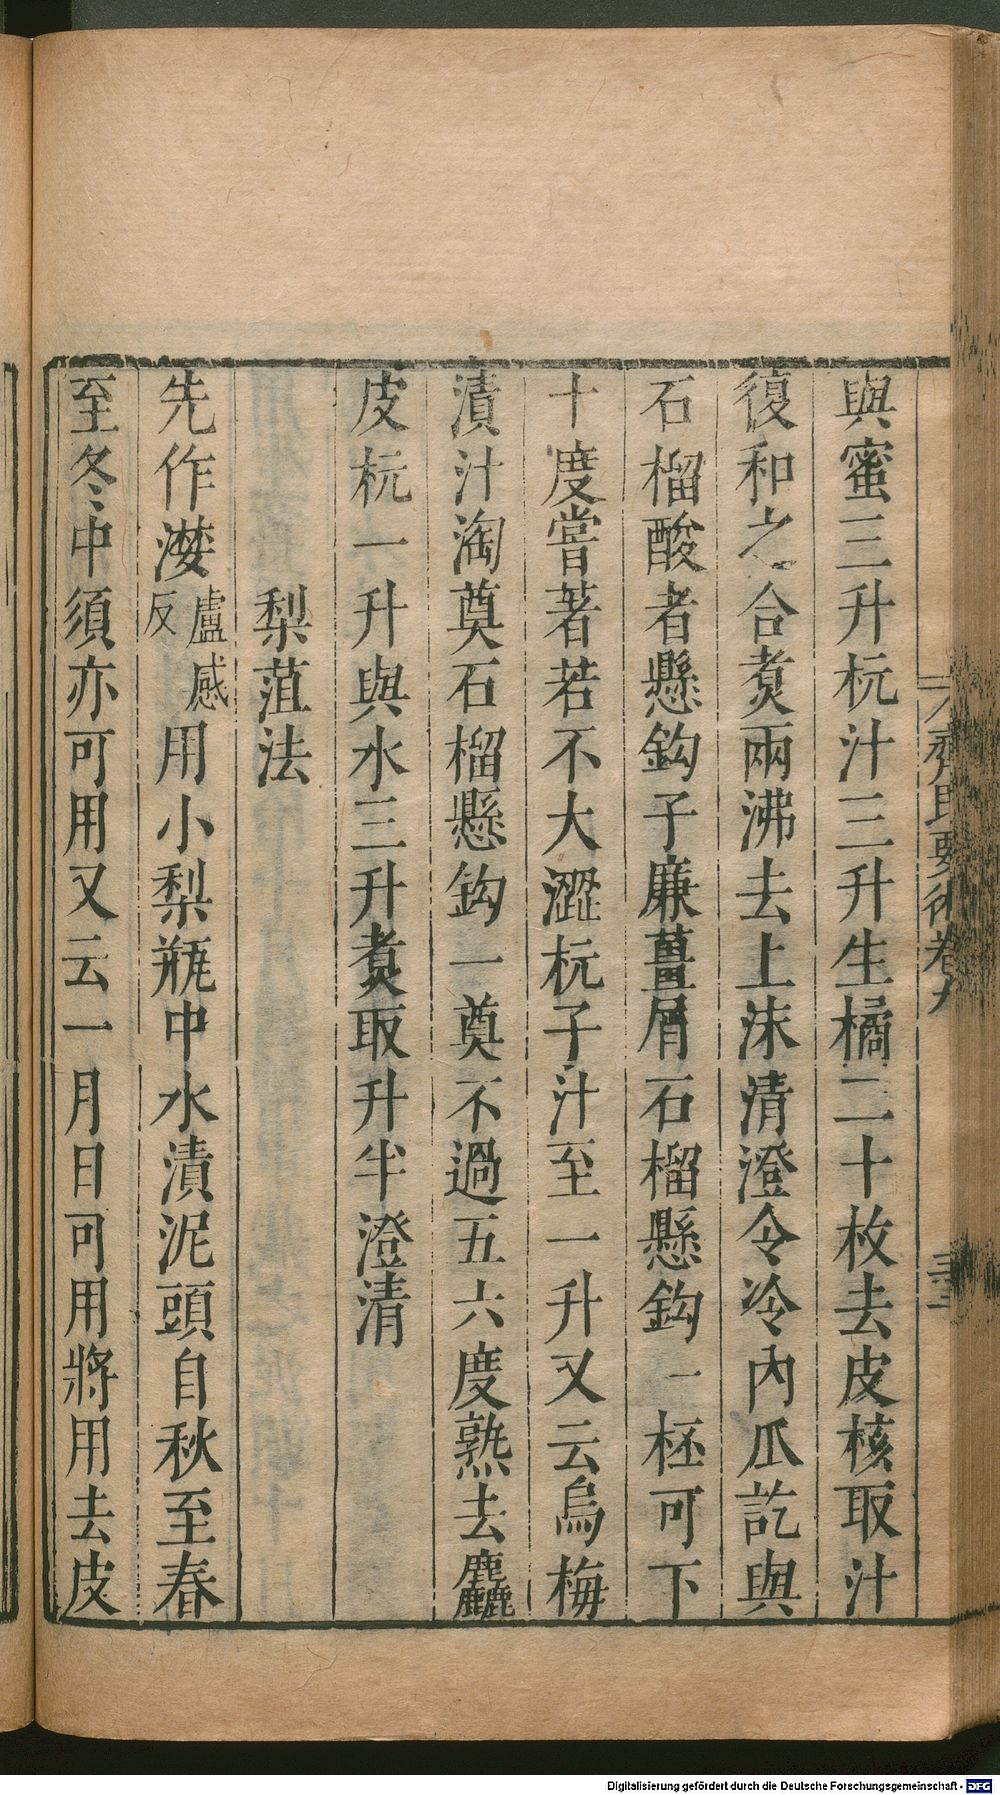 與蜜三升杬汁三升生橘二十枚去皮核取汁
復和之合煮兩沸去上沫清澄令冷內瓜訖與
石榴酸者懸鈎子廉薑屑石榴懸鈎一杯可下
十度嘗著若不大澀杬子汁至一升又云烏梅
漬汁淘奠石榴懸鈎一奠不過五六度熟去麤
皮杬一升與水三升煮取升半澄清
梨菹法
先作漤盧感反用小梨瓶中水漬泥頭自秋至春
至冬中須亦可用又云一月日可用將用去皮
齊民要術卷九
Digitalisierung gefördert durch die Deutsche Forschungsgemeinschaft - DFG